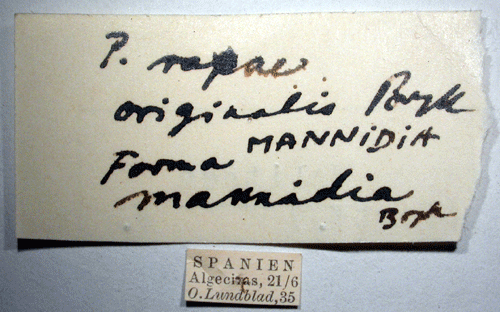 P. rapae
originalis Bryk
MANNIDIA
Forma
mannidia
Bryk
SPANIEN
Algeciras, 21/6
O. Lundblad, 35